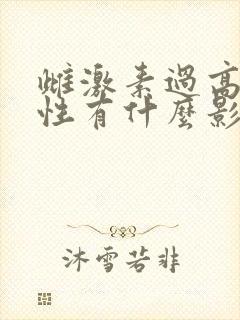 雌激素過高
性有什麼影
沐雪若非